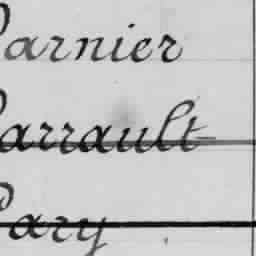 Parnier
Parrault
Pary